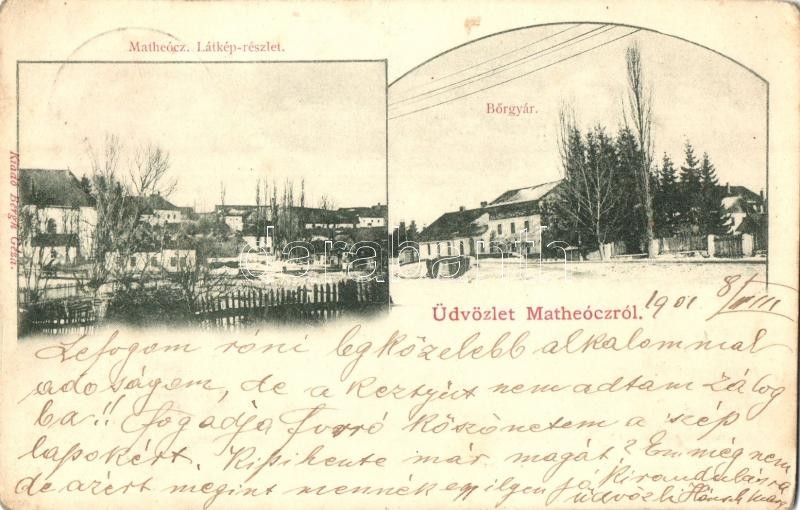 Matheócz. Látkép-részlet.
Bőrgyár.
Kiadó Bergh Géza.
darabanth
Üdvözlet Matheóczról.
1901 8/VIII
Lefogom róni legközelebb alkalommal
adoságom, de a keztyűt nem adtam zálog
ba!! fogadja forró köszönetem a szép
lapokért. Kipihente már magát? Én még nem
de azért megint mennék egy ilyen jó kirándulásra
üdvözli